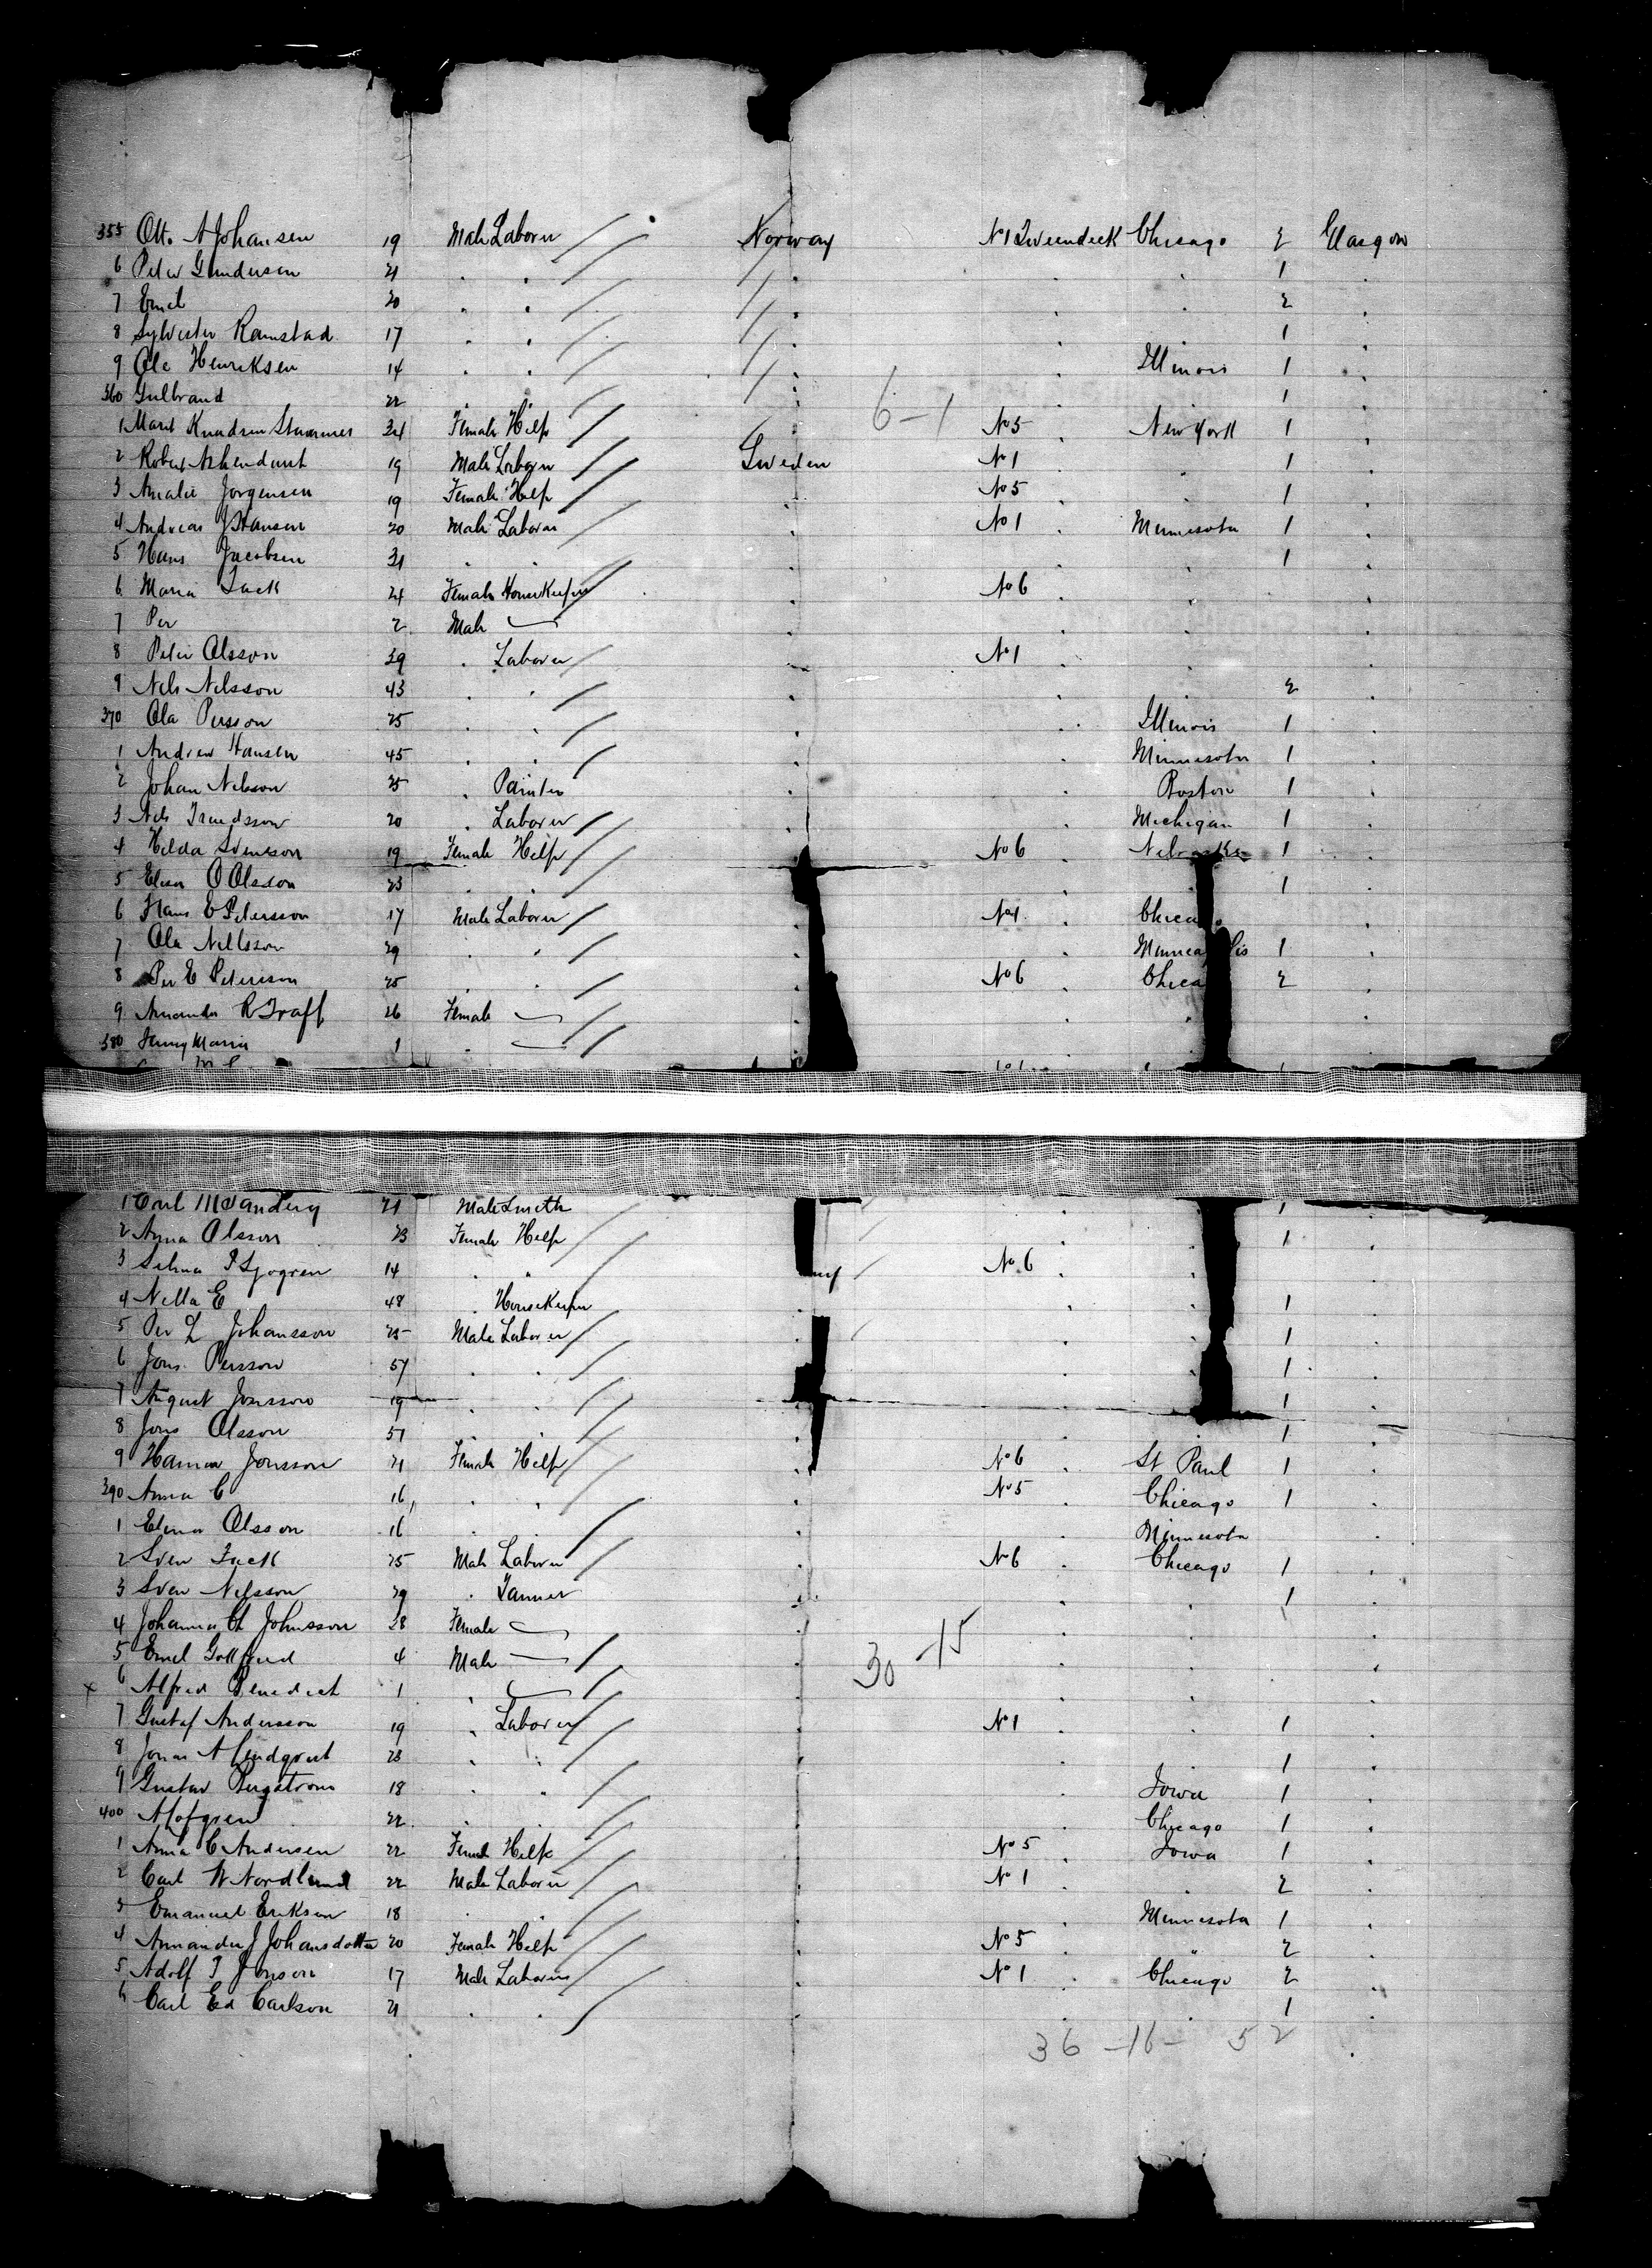 355 Otto A Johansen 19 Male Laborer Norway No 1 Tweendeck Chicago 2 Glasgow
6 Peter Gundersen 21 . . . . . 1 .
7 Emil 20 . . . . . 2 .
8 Sylvester Ramstad 17 . . . . 1 .
9 Ole Henriksen 14 . . . . Illinois 1 .
360 Gulbrand 22 . . . . . 1 .
6-1
1 Marit Knudsen 24 Female Help . No 5 . New York 1 .
2 Robert 19 Male Laborer Sweden No 1 . . 1 .
3 Amalie Jorgensen 19 Female Help . No 5 . . 1 .
4 Andreas J Hansen 20 Male Laborer . No 1 . Minnesota 1 .
5 Hans Jacobsen 31 . . . . . 1 .
6 Maria 24 Female HouseKeeper . No 6 . . .
7 Per 2 Male — . . . .
8 Peter Olsson 39 . Laborer . No 1 . . .
9 Nels Nilsson 43 . . . . . 2 .
370 Ola Persson 25 . . . . Illinois 1 .
1 Andrew Hansen 45 . . . . Minnesota 1 .
2 Johan Nilsson 25 . Painter . . Boston 1 .
3 Nels 20 . Laborer . . Michigan 1 .
4 Hilda Svensson 19 Female Help . No 6 . Nebraska 1 .
5 Elisa O Olsson 23 . . . . 1 .
6 Hans E Petersson 17 Male Laborer No 1 . Chica
7 Ola Nillsson 29 . . . . Minnea lis 1 .
8 Per E Petersson 25 . . . No 6 . Chica 2 .
9 Amanda R Traff 26 Female — . . . .
380 Jenny Maria 1 . —
1 Carl M Sandberg 21 Male Smith . . 1 .
2 Anna Olsson 23 Female Help . . 1 .
3 Selma P Sjogren 14 . . No 6 . . .
4 Nella E 48 . HouseKeeper . . . 1 .
5 Per L Johansson 25 Male Laborer . . . 1 .
6 Jons Persson 57 . . . . 1 .
7 August Jonsson 19 . . . . 1 .
8 Jons Olsson 51 . . . . 1 .
9 Hanna Jonsson 21 Female Help . No 6 . St Paul 1 .
390 Anna C 16 . . . No 5 . Chicago 1 .
1 Elna Olsson 16 . . . Minnesota .
2 Sven 25 Male Laborer . No 6 . Chicago 1 .
3 Sven Nilsson 29 . Tanner . . 1 .
4 Johanna Ch Johnsson 28 Female — . . . .
30-15
5 Emil Gottfried 4 Male — . . . .
x 6 Alfred Benedict 1 . — . . . .
7 Gustaf Andersson 19 . Laborer . No 1 . . 1 .
8 Jonas A Lindqvist 23 . . . . . 1 .
9 Gustav Bergstrom 18 . . . . Iowa 1 .
400 A Lofgren 22 . . . . Chicago 1 .
1 Anna C Andersen 22 Female Help . No 5 . Iowa 1 .
2 Carl W Nordlund 22 Male Laborer . No 1 . . 2 .
3 Emanuel Eriksen 18 . . . . Minnesota 1 .
4 Amanda J Johansdotter 20 Female Help . No 5 . . 2 .
5 Adolf T Jonson 17 Male Laborer . No 1 . Chicago 2 .
6 Carl Ed Carlson 21 . . . . . 1 .
36-16- 52